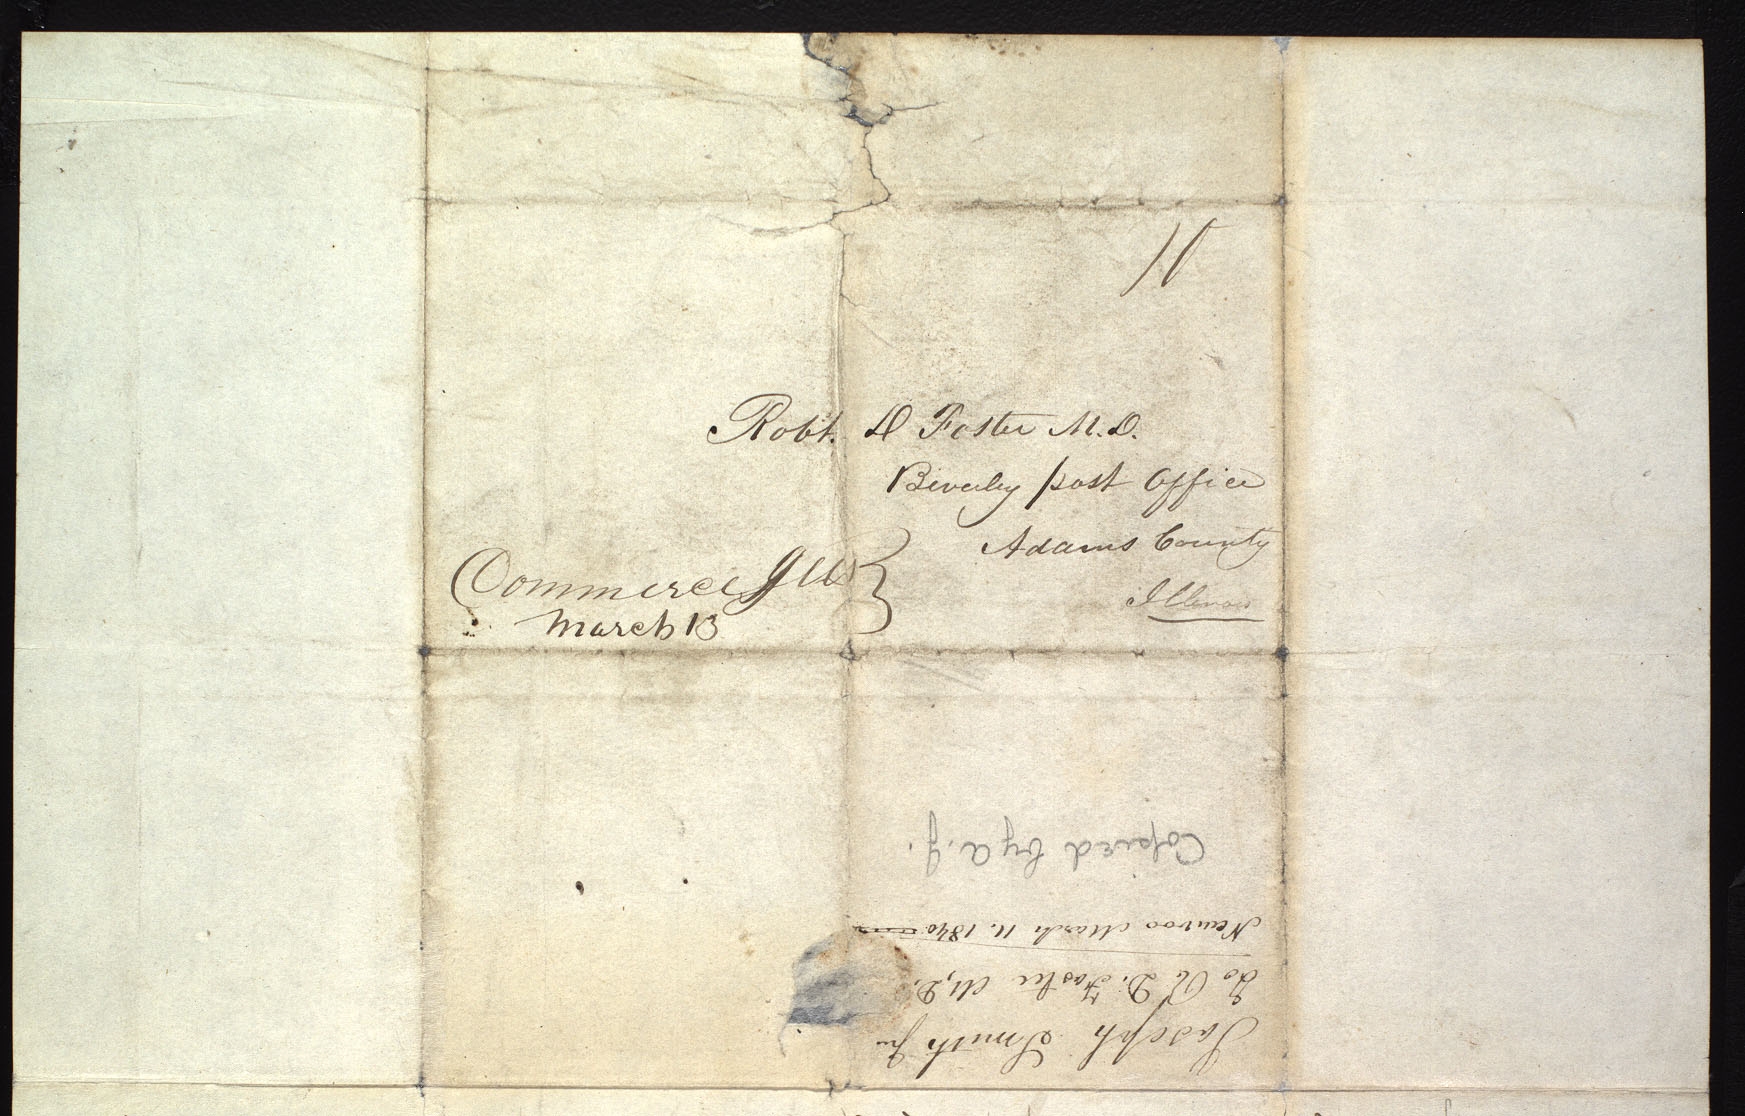 10
Robt. D Foster M.D.
Beverley post Office
Adams County
Illinois
Commerce Ill
March 13
Joseph Smith Jr
To R. D. Foster M,D.
Nauvoo March 11. 1840
Copied by A. J.